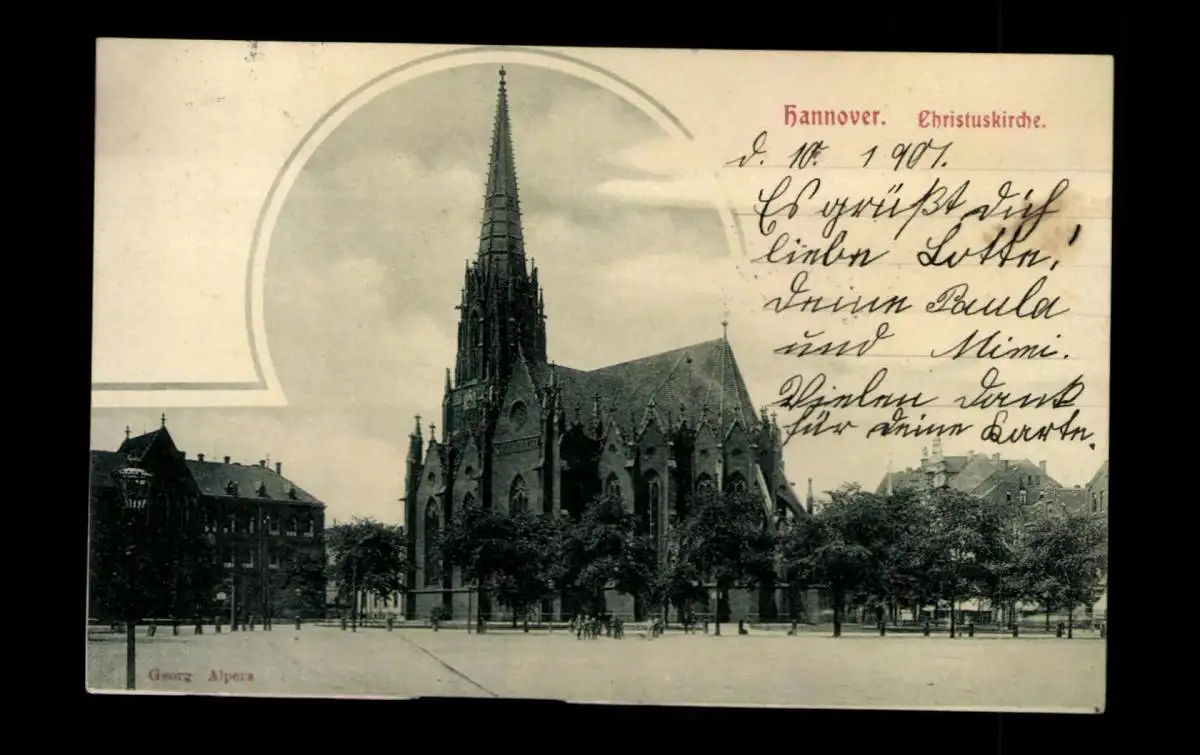 Hannover. Christuskirche.
d. 10. 1 1901.
Es grüßt Dich
liebe Lotte!
Deine Paula
und Mimi.
Vielen Dank
für deine Karte.
Georg Alpers